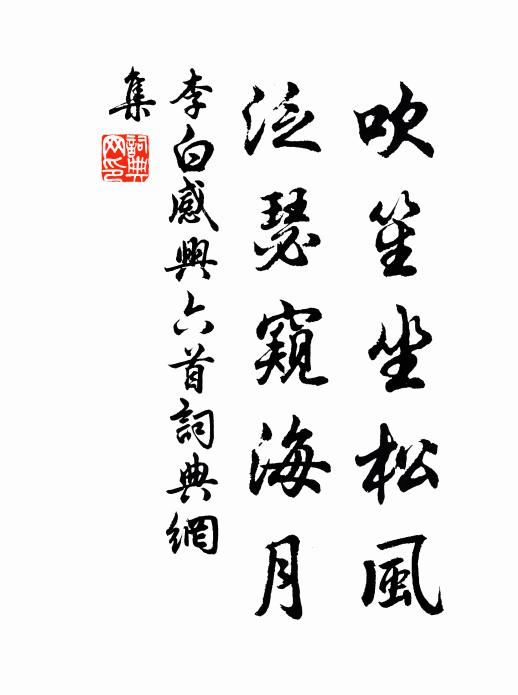 吹笙坐松風
泛瑟窺海月
李白感興六首詞典網
集
詞典網印